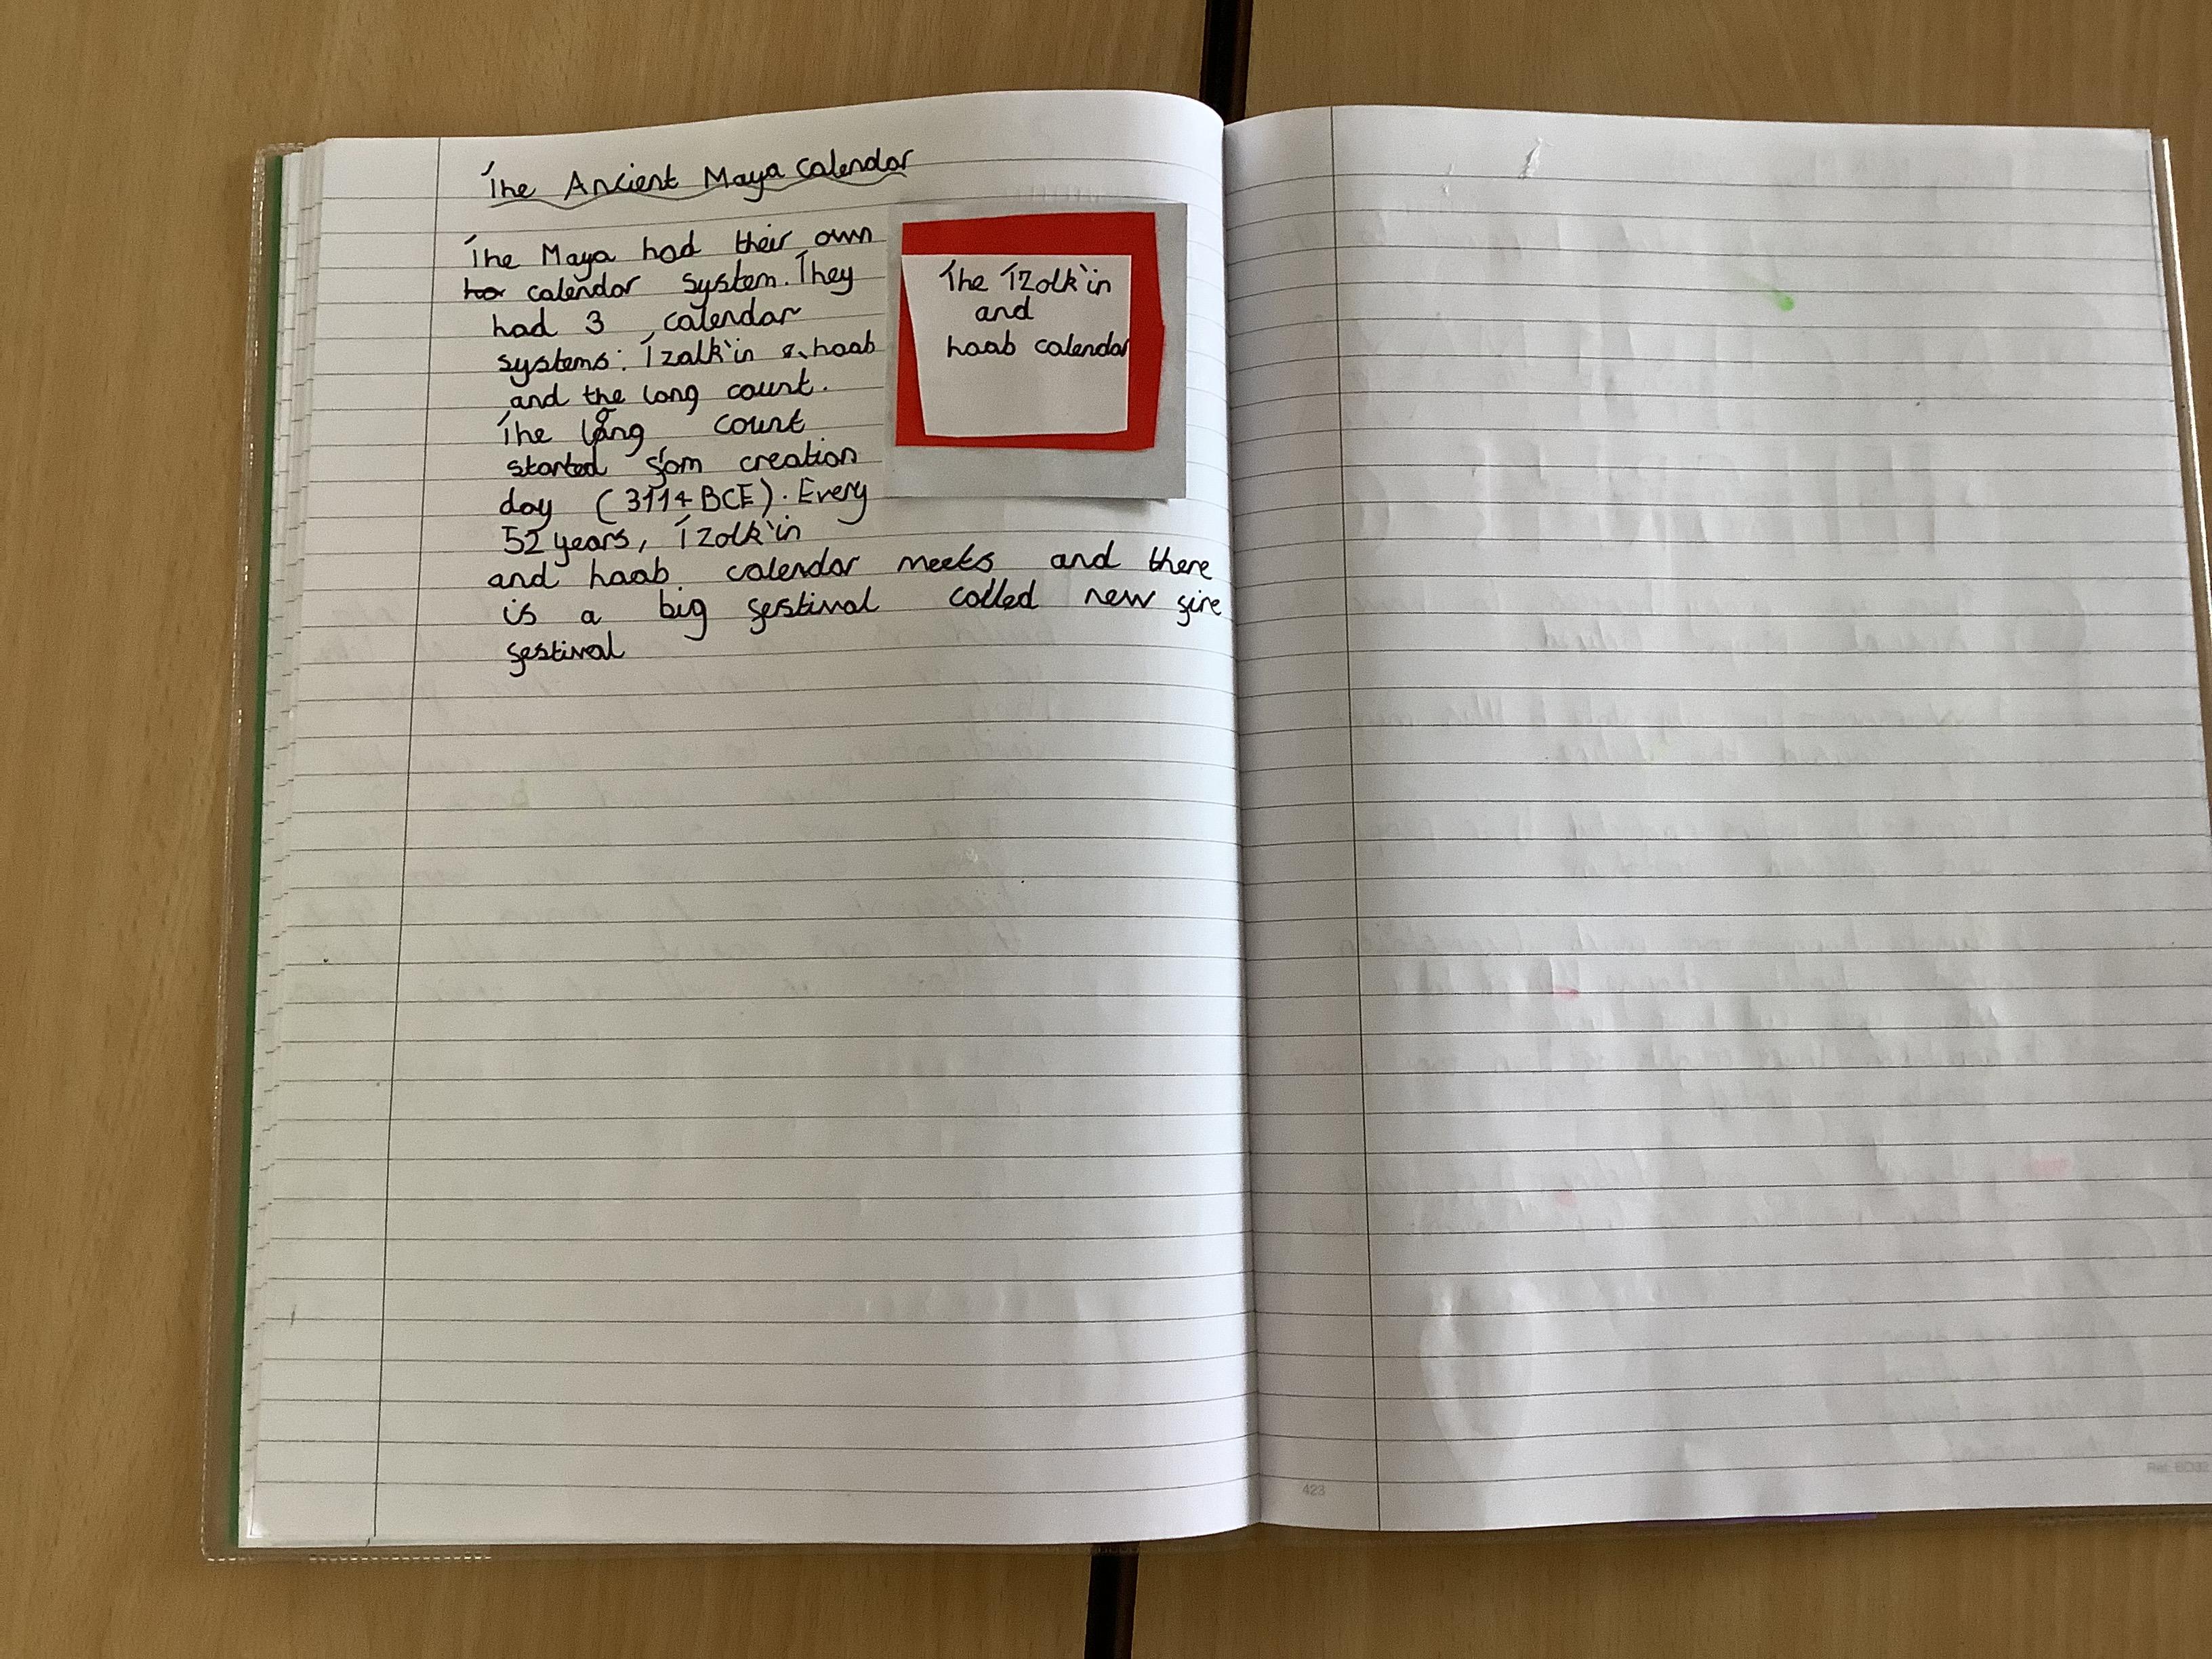 The Ancient Maya Calendar
The Maya had their own
ha calendar system. They
had 3 calendar
systems: Tzalk'in & haab
and the long count.
The long count
started fom creation
day (3114 BCE). Every
52 years, Tzolk'in
and haab calendar meets and there
is a big festival called new fire
festival
The Tzolk'in
and
haab calendar
423